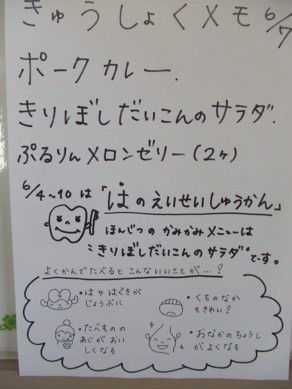 きゅうしょくメモ 6/7
ポークカレー.
きりぼしだいこんのサラダ.
ぷるりんメロンゼリー(2ヶ)
6/4~10は「はのえいせいしゅうかん」
ほんじつのかみかみメニューは
"きりぼしだいこんのサラダ"です。
よくかんでたべるとこんないいことが…!
・はやはぐきが
じょうぶに
・くちのなか
もきれい!
・たべものの
あじがおい
しくなる
・おなかのちょうし
がよくなる